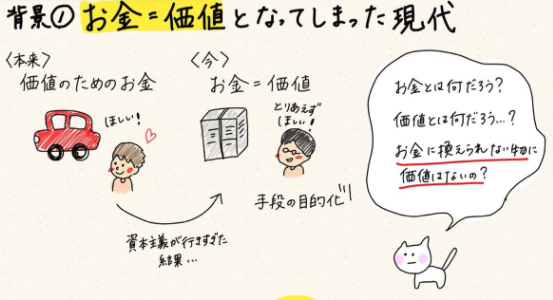 背景① お金=価値となってしまった現代
〈本来〉
価値のためのお金
ほしい!
〈今〉
お金=価値
とりあえず
ほしい!
手段の目的化
資本主義が行きすぎた
結果...
お金とは何だろう?
価値とは何だろう...?
お金に換えられない物に
価値はないの?